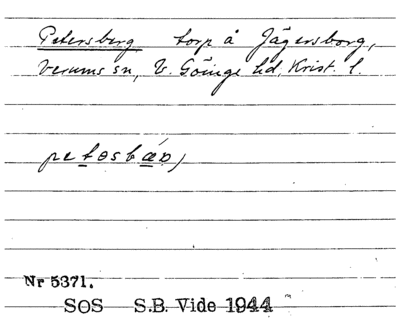 Petersberg torp å Jägersborg,
Verums sn, V. Göinge hd. Krist. l.
Nr 5371.
SOS S.B. Vide 1944